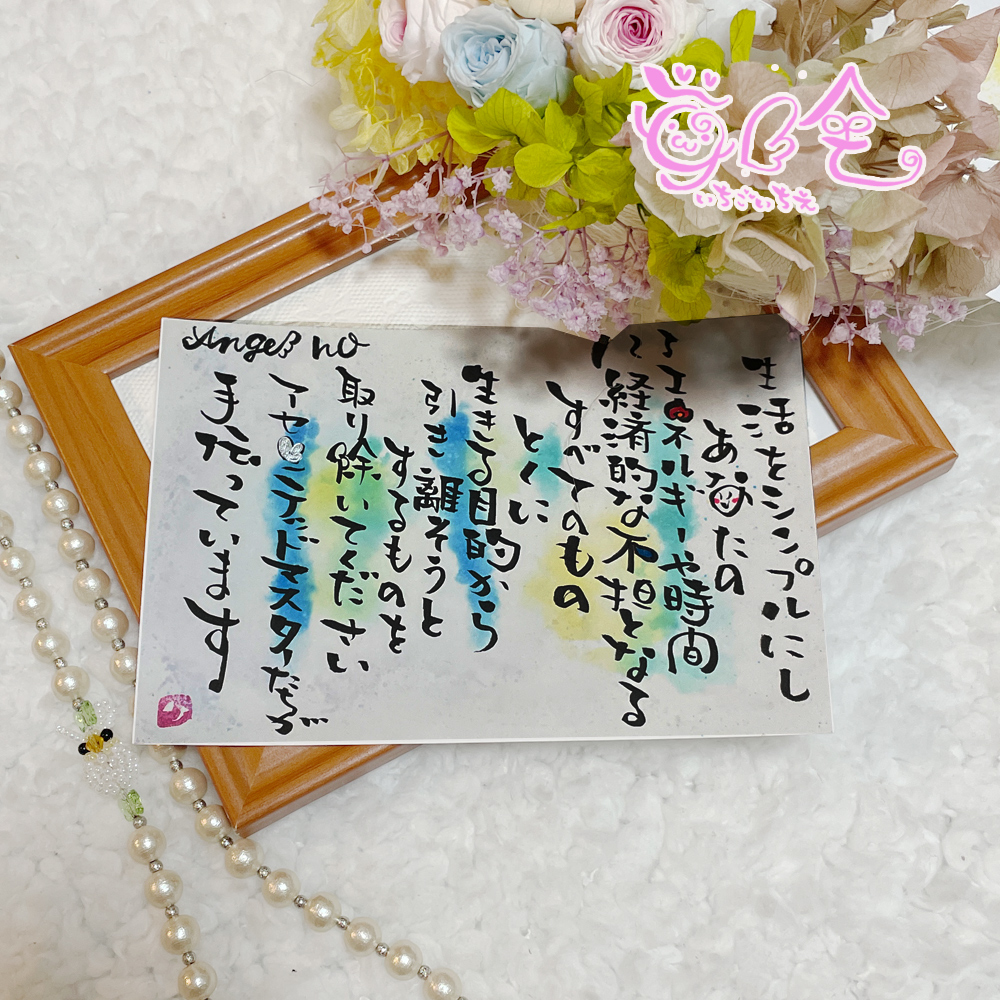 生活をシンプルにし
あなたの
エネルギーや時間
に経済的な不担となる
すべてのもの
とくに
生きる目的から
引き離そうと
するものを
取り除いてください
アセンデッドマスターたちが
手伝っています
Angel no
いちごいちえ